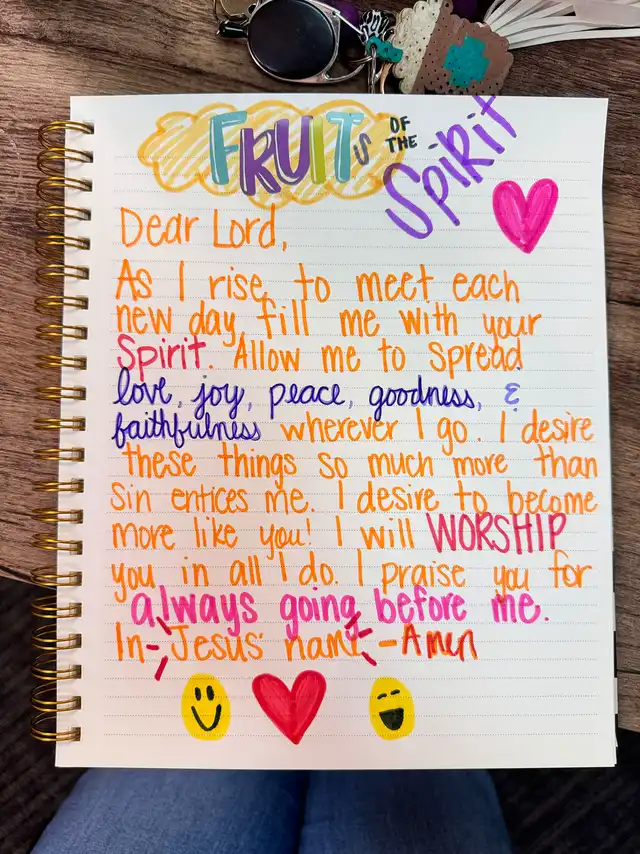 FRUITs OF THE Spirit
Dear Lord,
As I rise to meet each
new day, fill me with your
Spirit. Allow me to spread
love, joy, peace, goodness, &
faithfulness wherever I go. I desire
these things so much more than
sin entices me. I desire to become
more like you! I will WORSHIP
you in all I do. I praise you for
always going before me.
In Jesus' name -Amen